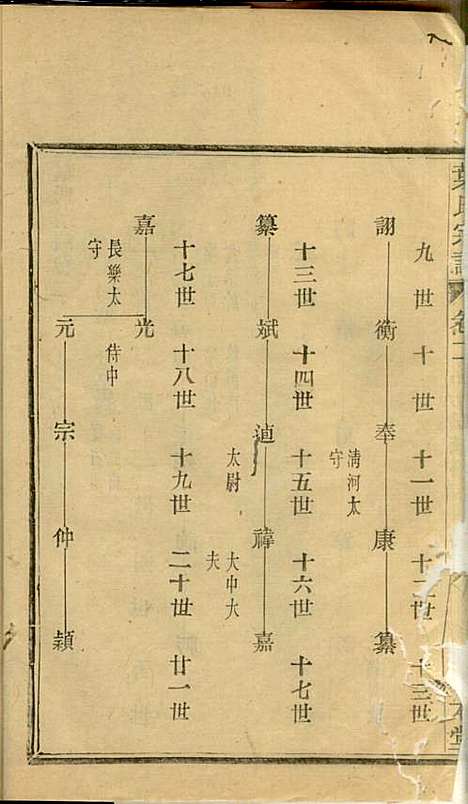 葉氏宗譜 卷二
九世 十世 十一世 十二世 十三世
詡 衡 奉 康 纂
清河太守
十三世 十四世 十五世 十六世 十七世
纂 斌 逌 禕 嘉
太尉
大中大夫
十七世 十八世 十九世 二十世 廿一世
嘉 光
長樂太守
侍中
元 宗 仲 潁